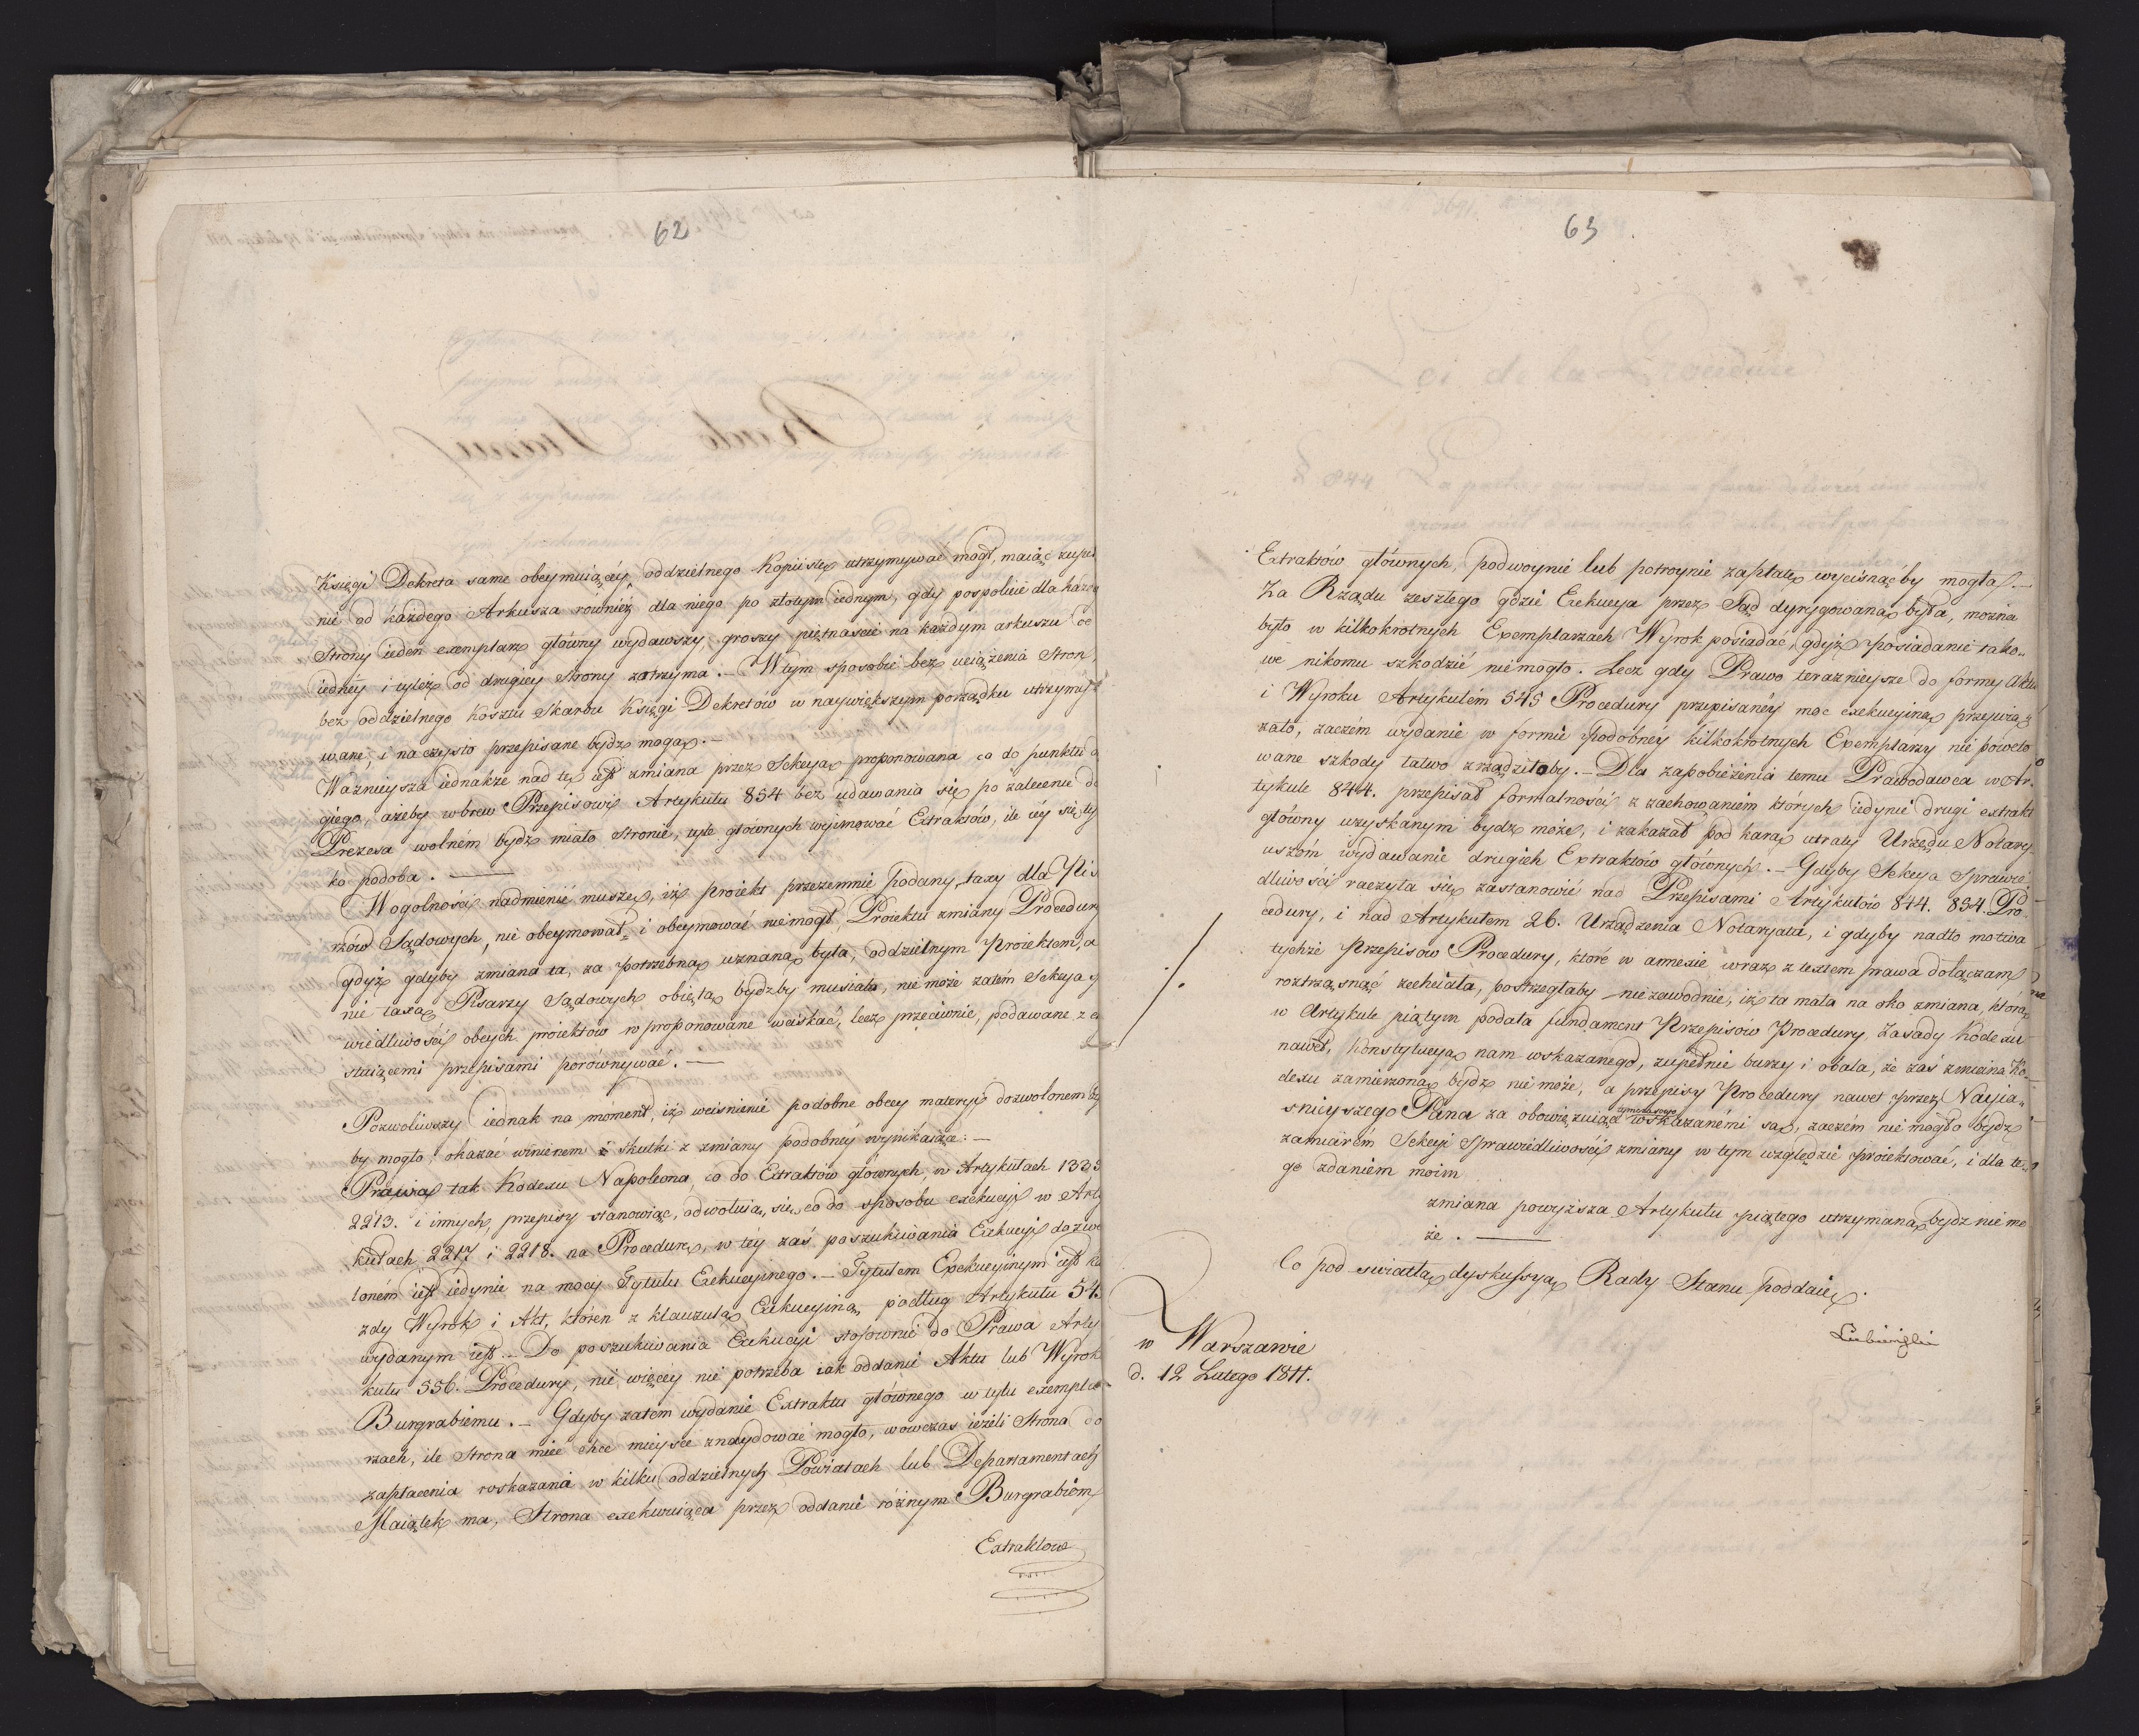 62
Księgi Dekreta same obeymuiącéy, oddzielnego Kopiistę utrzymywać mógł, maiąc zupeł
nie od każdego Arkusza również dla niego po złotym iednym, gdy pospolicie dla każdey
Strony ieden exemplarz główny wydawszy, groszy piętnaście na każdym arkuszu od
iednéy i tyleż od drugiey strony zatrzyma. – W tym sposobie bez uciążenia Stron,
bez oddzielnego kosztu Skarbu Księgi Dekretów w naywiększym porządku utrzymy
wane, i na czysto przepisane bydź mogą. –
Ważnieysza iednakże nad tę iest zmiana przez Sekcyą proponowana co do punktu
giego, ażeby wbrew Przepisowi Artykułu 854 bez udawania się po zalecenie do
Prezesa wolném bydź miało stronie, tyle głównych wyimować Extraktów, ile iéy się tyl
ko podoba. —
W ogolności nadmienić muszę, iż proiekt przezemnie podany, taxy dla Pis
rzów Sądowych, nie obeymował i obeymować nie mógł, Proiektu zmiany Procedury
gdyż gdyby zmiana ta, za potrzebną uznaną była, oddzielnym Proiektem, a
nie taxą Pisarzy Sądowych obiętą bydźby musiała, nie może zatém Sekcya
wiedliwości obcych proiektów w proponowane wciskać, lecz przeciwnie, podawane z
staiącemi przepisami porównywać. —
Pozwoliwszy iednak na moment, iż wciśnienie podobne obcey materyi dozwolonem
by mogło, okazać winienem skutki z zmiany podobnéy wynikaiące: –
Prawa tak Kodexu Napoleona, co do Extraktów głównych, w Artykułach 1335
2213. i innych, przepisy stanowiąc, odwołuią się co do sposobu exekucyi w Arty
kułach 2217 i 2218. na Procedurę, w téy zaś poszukiwania Exekucyi dozwo
loném iest iedynie na mocy Tytułu Exekucyinego. – Tytułem Exekucyinym iest ka
żdy Wyrok i Akt, któren z klauzulą Exekucyiną, podług Artykułu 545
wydanym iest. – Do poszukiwania Exekucyi stosownie do Prawa Arty
kułu 556. Procedury, nie więcéy nie potrzeba iak oddanie Aktu lub Wyroku
Burgrabiemu. – Gdyby zatem wydanie Extraktu głównego w tylu exempla
rzach, ile Strona mieć chce mieysce znaydować mogło, wówczas ieżeli Strona do
zapłacenia wskazana w kilku oddzielnych Powiatach lub Departamentach
Maiątek ma, Strona exekwuiąca przez oddanie różnym Burgrabiom
Extraktów
63
Extraktów głównych, podwoynie lub potroynie zapłatę wycisnąćby mogła. –
Za Rządu zeszłego gdzie Exekucya przez Sąd dyrygowaną była, można
było w kilkokrotnych Exemplarzach Wyrok posiadać, gdyż posiadanie tako„
we nikomu szkodzić nie mogło. Lecz gdy Prawo teraznieysze do formy Aktu
i Wyroku Artykułem 545 Procedury przepisanéy moc exekucyiną przywią
zało, zaczém wydanie w formie podobnéy kilkokrotnych Exemplarzy nie poweto
wane szkody łatwo zrządziłoby. – Dla zapobieżenia temu Prawodawca w Ar„
tykule 844. przepisał formalności z zachowaniem których iedynie drugi extrakt
główny uzyskanym bydź może, i zakazał pod karą utraty Urzędu Notary
uszom wydawanie drugich Extraktów głównych. – Gdyby Sekcya Sprawie
dliwości raczyła się zastanowić nad Przepisami Artykułów 844. 854. Pro
cedury, i nad Artykułem 26. Urządzenia Notaryatu, i gdyby nadto motiwa
tychże Przepisów Procedury, które w annexie wraz z textem prawa dołączam
roztrząsnąć zechciała, postrzegłaby niezawodnie, iż ta mała na oko zmiana, którą
w Artykule piątym podała fundament Przepisów Procedury, Zasady Kodexu
nawet, Konstytucyą nam wskazanego, zupełnie burzy i obala, że zaś zmiana Ko„
dexu zamierzoną bydź nie może, a przepisy Procedury nawet przez Nayia„
snieyszego Pana za obowiązuiące tymczasowo wskazanémi są, zaczém nie mogło bydź
zamiarém Sekcyi Sprawiedliwości zmiany w tym względzie proiektować, i dla te„
go zdaniem moim
zmiana powyższa Artykułu piątego utrzymaną bydź nie mo
że. —
Co pod swiatłą dyskussyą Rady Stanu poddaię.
w Warszawie
d. 12 Lutego 1811.